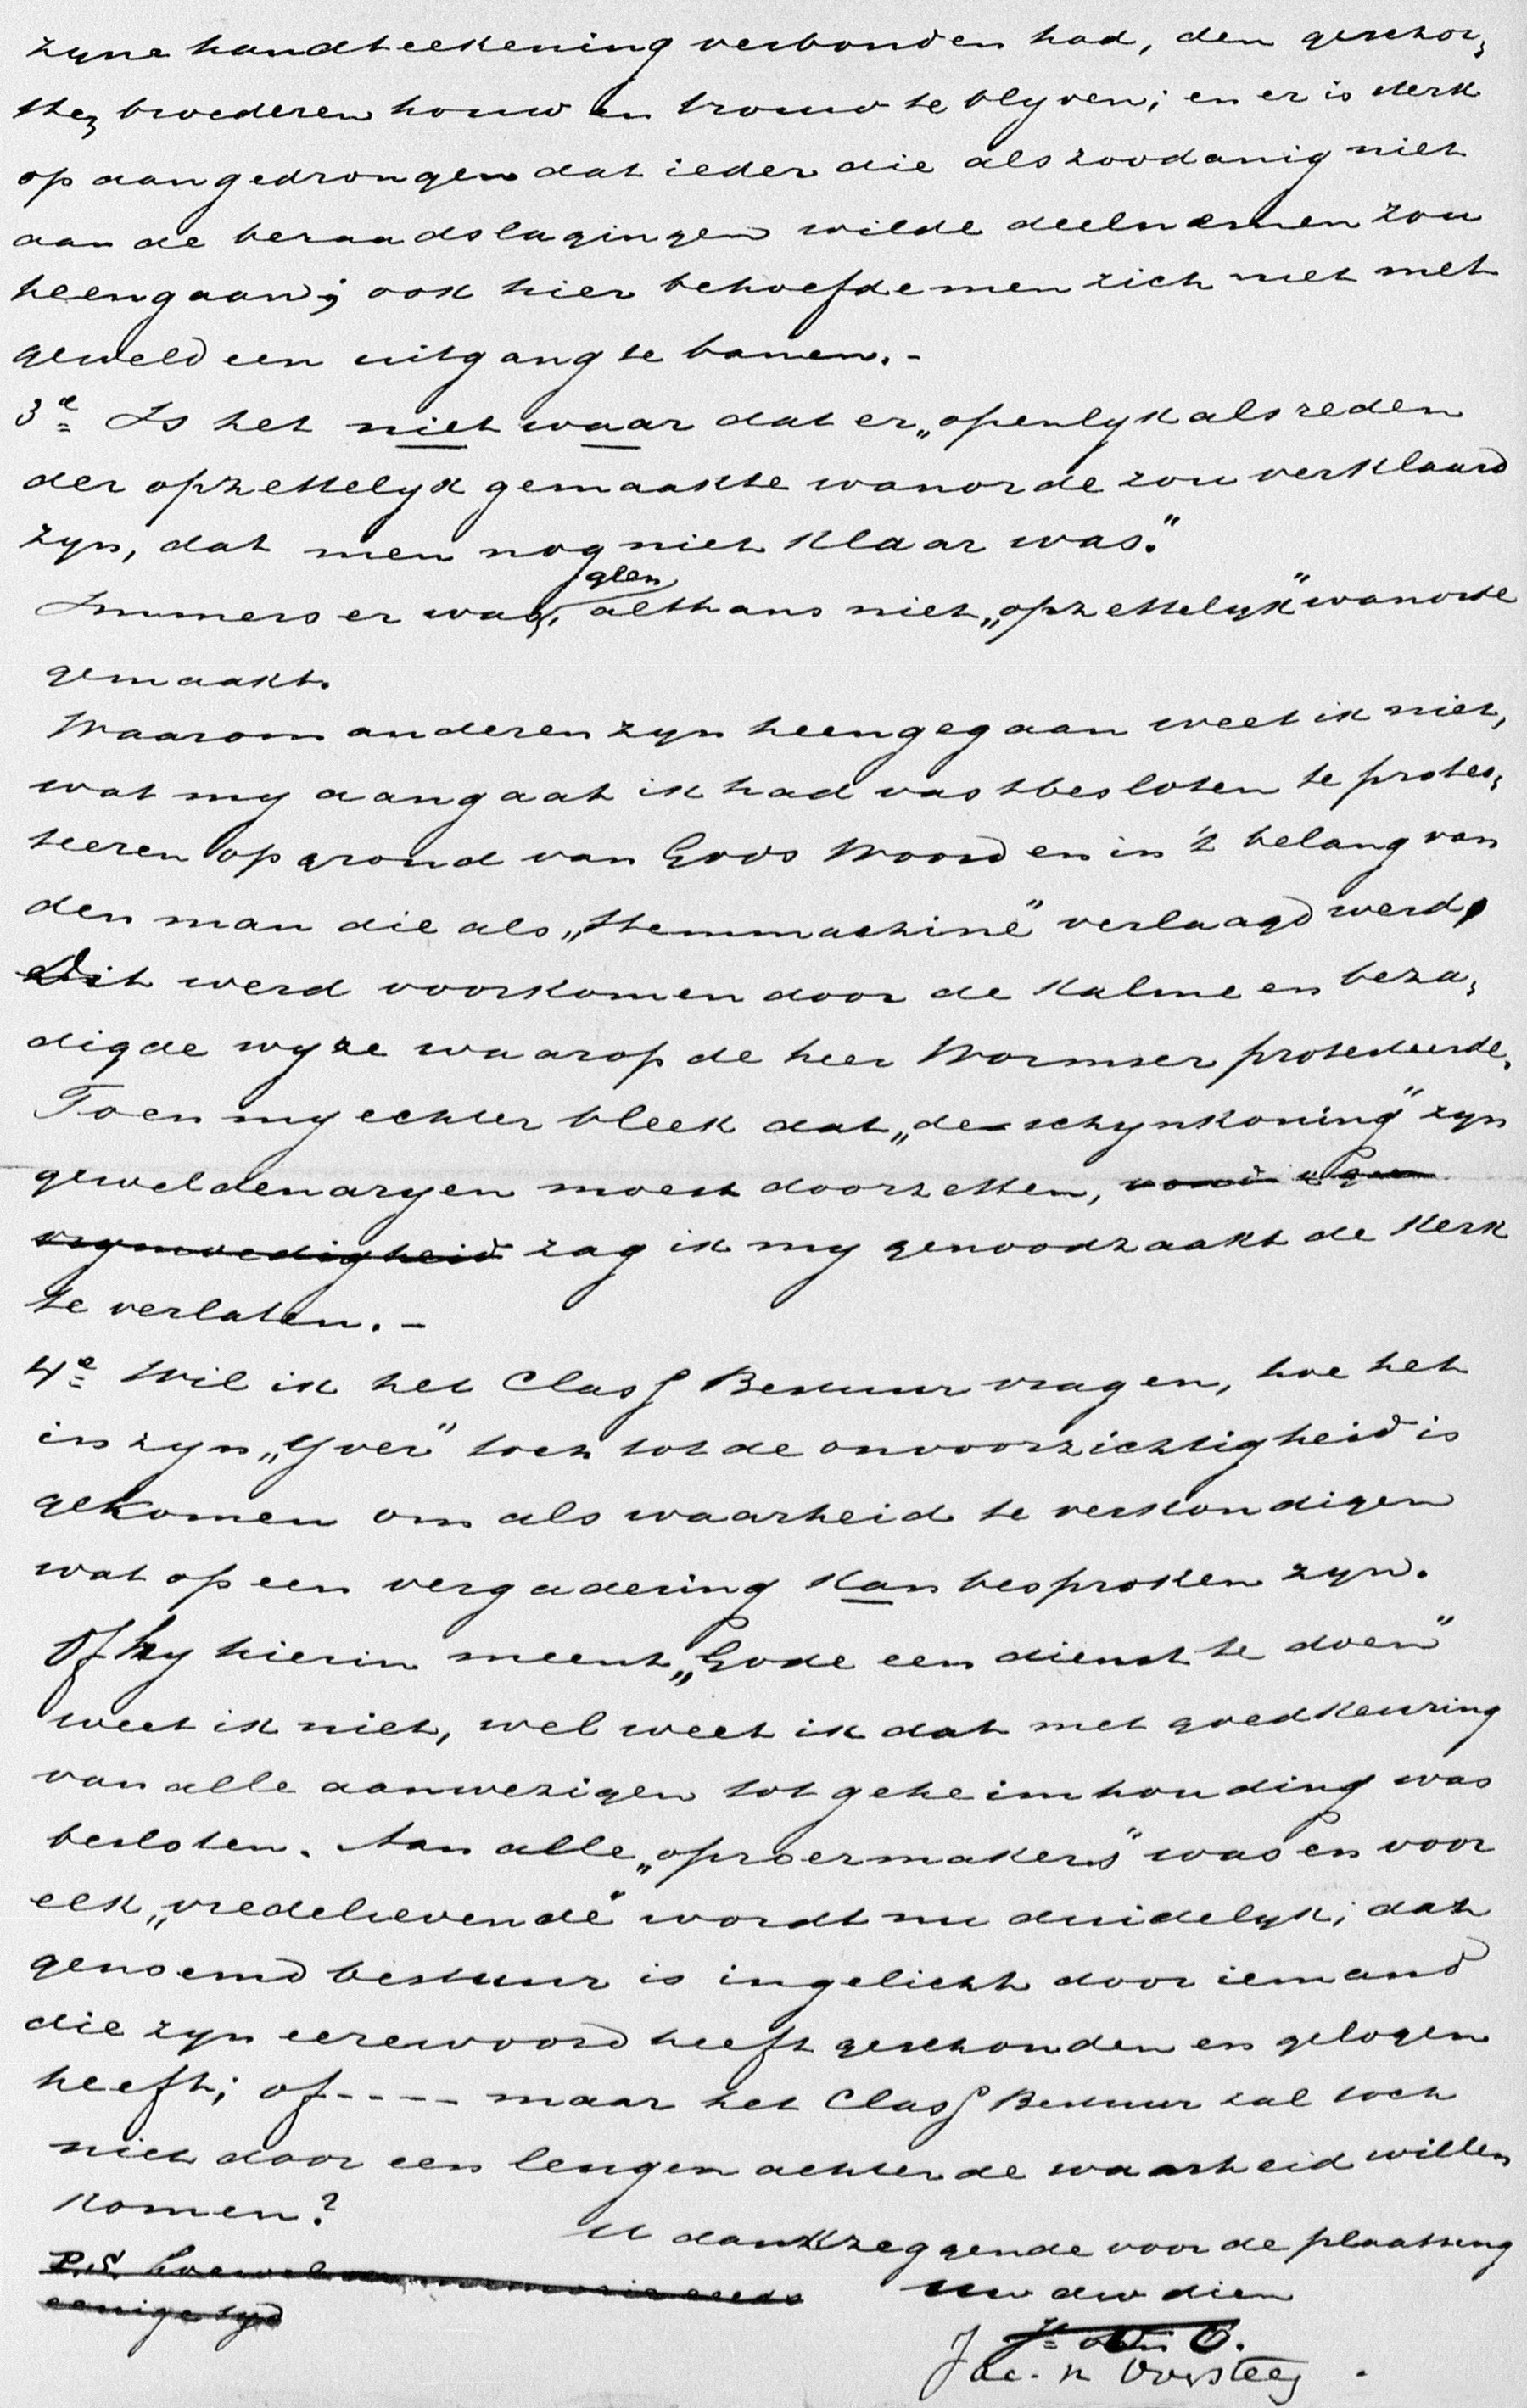 zyne handteekening verbonden had, den geschor„
ste„ broederen houw en trouw te blyven; en er is sterk
op aangedrongen dat ieder die als zoodanig niet
aan de beraadslagingen wilde deelnemen zou
heengaan; ook hier behoefde men zich niet met
geweld een uitgang te banen.-
3e Is het niet waar dat er „openlyk als reden
der opzettelyk gemaakte wanorde zou verklaard
zyn, dat men nog niet klaar was."
geen
Immers er was, althans niet „opzettelyk" wanorde
gemaakt.
Waarom anderen zyn heengegaan weet ik niet,
wat my aangaat ik had vast besloten te protes„
teeren op grond van Gods Woord en in 't belang van
den man die als „stemmachine" verlaagd werd,
Dit werd voorkomen door de kalme en beza„
digde wyze waarop de heer Wormser protesteerde.
Toen my echter bleek dat „de schynkoning" zyn
geweldenaryen moest doorzetten, vond
vrymoedigheid zag ik my genoodzaakt de Kerk
te verlaten.-
4e Wil ik het Class Bestuur vragen, hoe het
in zyn „Yver" toch tot de onvoorzichtigheid is
gekomen om als waarheid te verkondigen
wat op een vergadering kan besproken zyn.
Of hy hierin meent „Gode een dienst te doen"
weet ik niet, wel weet ik dat met goedkeuring
van alle aanwezigen tot geheimhouding was
besloten. Aan alle „oproermakers" was en voor
elk „vredelievende" wordt nu duidelyk; dat
genoemd bestuur is ingelicht door iemand
die zyn eerewoord heeft geschonden en gelogen
heeft; of---- maar het Class Bestuur zal toch
niet door een leugen achter de waarheid willen
komen?
U dankzeggende voor de plaatsing
P.S. Hoewel memorie reeds
eenige tyd
Uw dw dien
Jac. n Oversteeg.